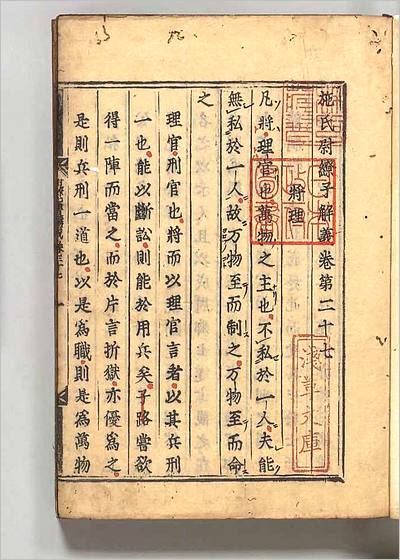 施氏尉繚子解義卷第二十七
將理
凡將理官也萬物之主也不私於一人夫能
無私於一人故万物至而制之万物至而命
之
理官刑官也將而以理官言者以其兵刑
一也能以斷訟則能於用兵矣子路嘗欲
得一陣而當之而於片言折獄亦優爲之
是則兵刑一道也以是爲職則是爲萬物
淺草文庫